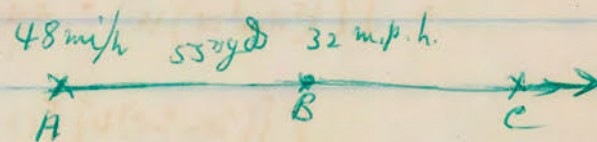 48 mi/h 550 yds 32 m.p.h.
A B C